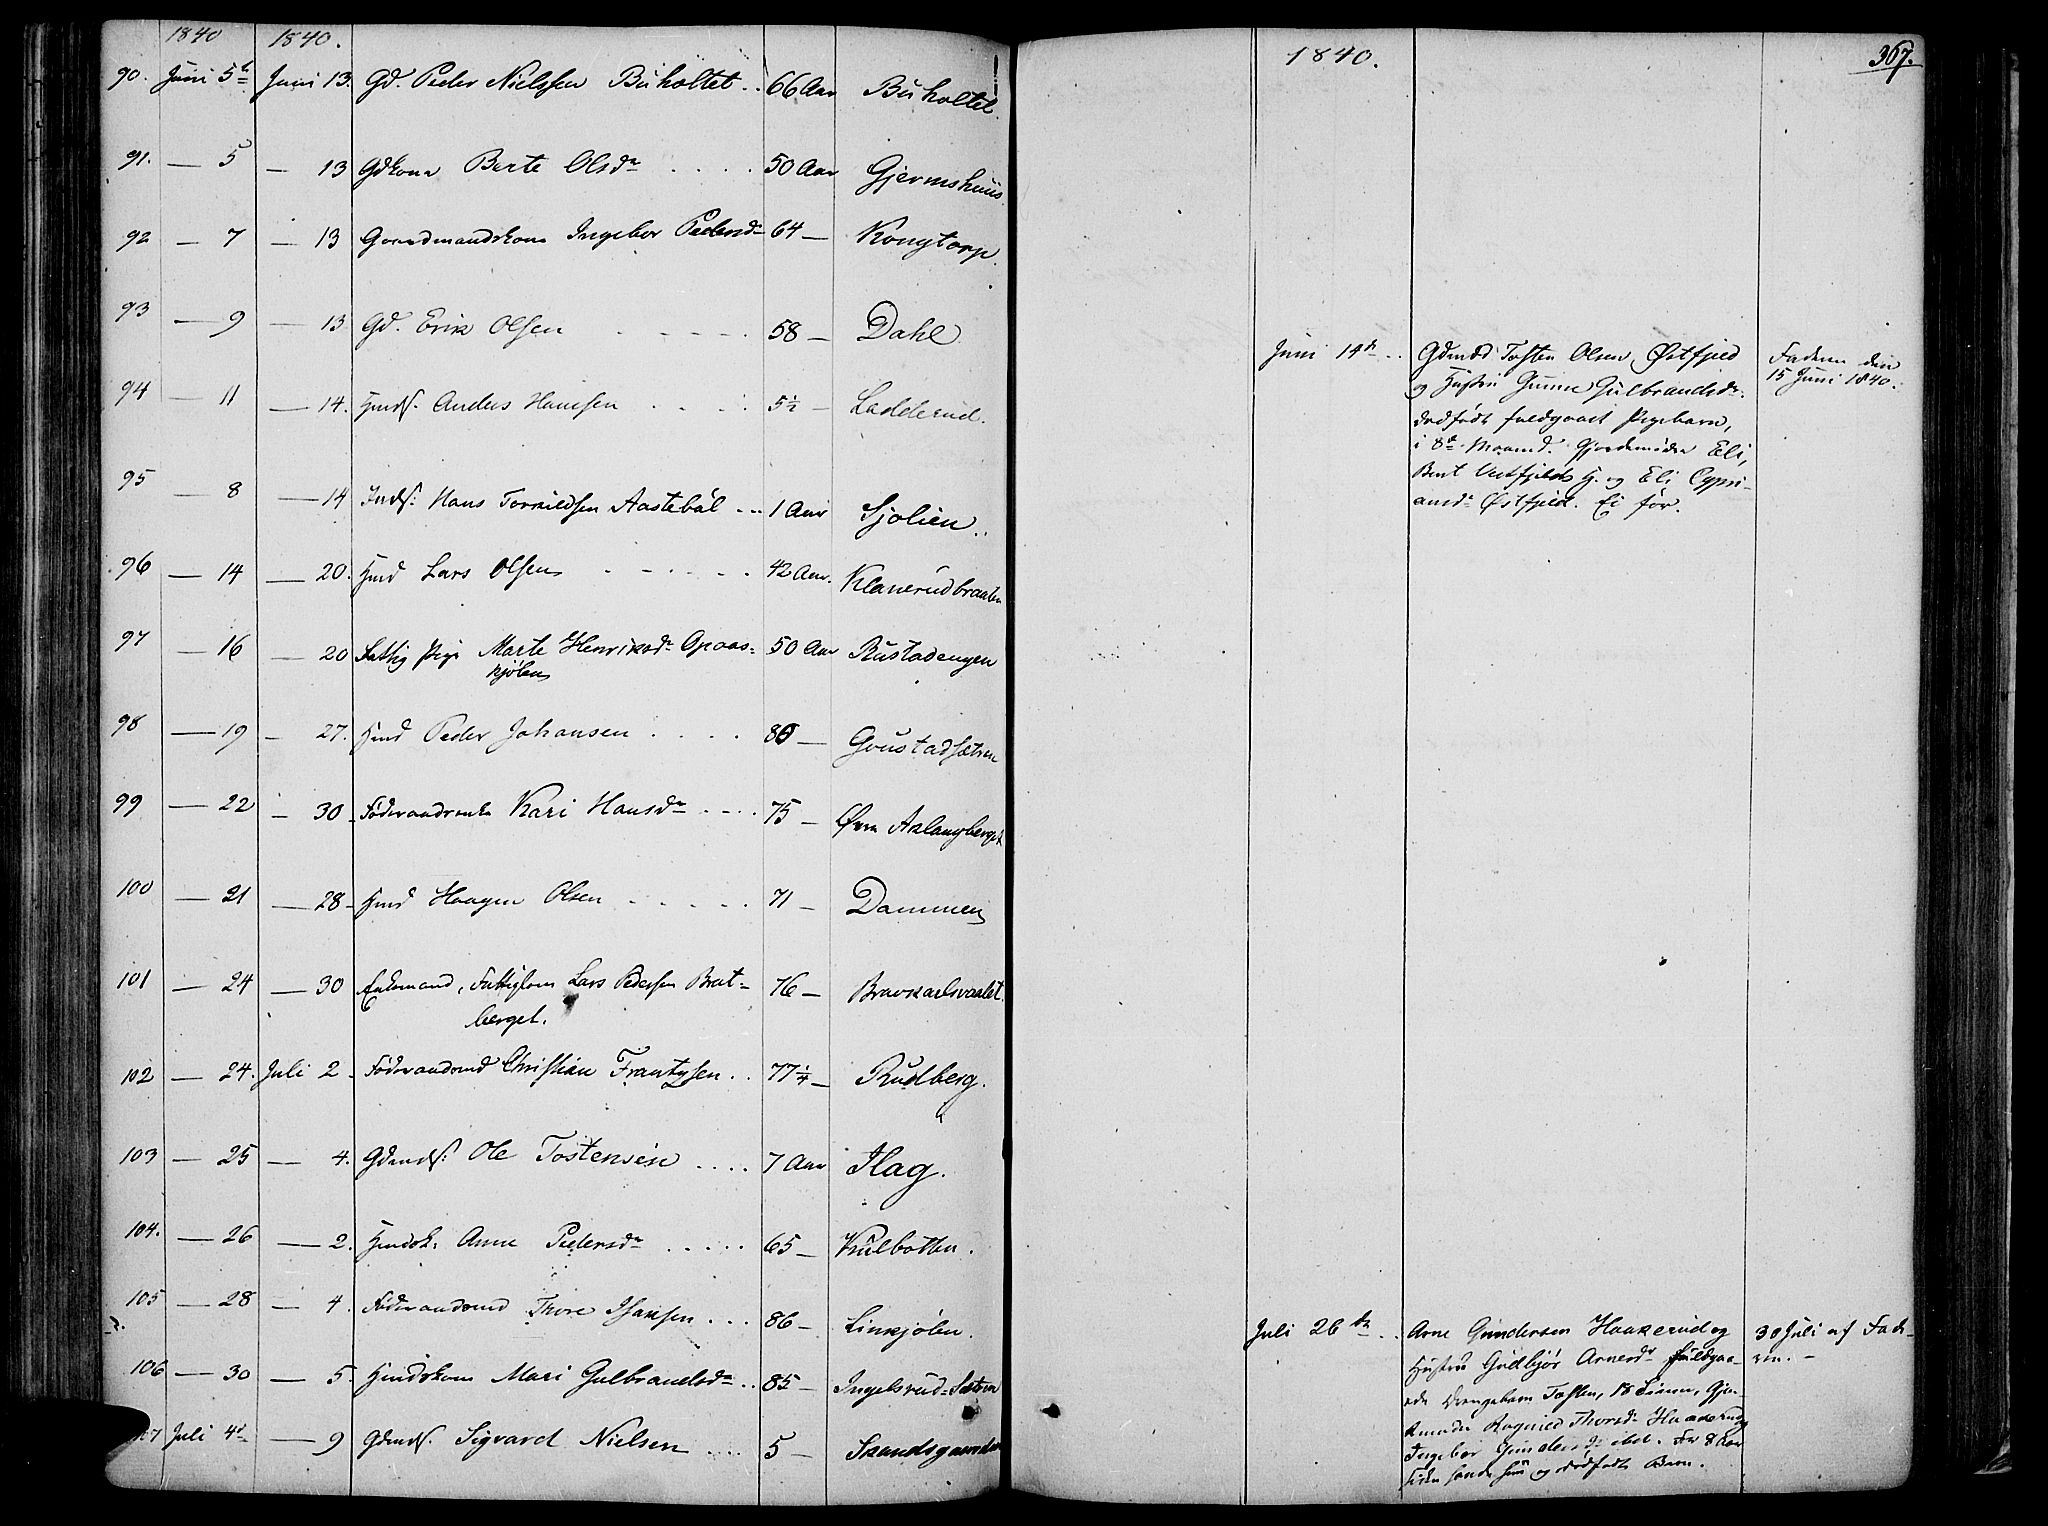 1840 1840.
90. Juni 5te Juni 13. Gd. Peder Nielssen Buholtet .. 66 Aar Buholtet.
91. — 5 — 13 Gdkone Berte Olsdr .... 50 Aar Gjermshuus.
92 — 7 — 13 Gaardmandskone Ingebor Pedersdr 64 — Kongtorp.
93 — 9 — 13 Gd. Erik Olsen ..... 58 — Dahl
94 — 11 — 14. Hmds. Anders Hansen .... 5½ — Ladderud.
95 — 8 — 14 Inds: Hans Torkildsen Aastebøl ... 1 Aar Sjolien..
96 — 14 — 20. Hmd Lars Olsen ...... 42 Aar. Klanerudbraaten
97 — 16 — 20 Fattig Pige Marte Henriksdr Opaas= 50 Aar Rustadengen
kjølen
98 — 19 — 27. Hmd Peder Johansen .... 80 — Goustadsætren
99 — 22 — 30 Føderaadsenke Kari Hansdr .... 75 — Øvre Aslangberget
100 — 21 — 28 Hmd Haagen Olsen ..... 71 — Dammen
101 — 24 — 30 Enkemand, Fattiglem Lars Pedersen Brat= 76 — Bravkarlsvaalet
berget.
102 — 24. Juli 2 Føderaadsmd Christian Frantzsen .. 77¼ — Rudberg.
103 — 25 — 4. Gdmds: Ole Tostensen .... 7 Aar Ilag.
104. — 26 — 2. Hmdsk. Anne Pedersdr ..... 65 — Kulbotten.
105 — 28 — 4. Føderaadsmd Thore Isaksen ... 86 — Linkjølen.
106 — 30 — 5. Hmdskone Mari Gulbrandsdr .. 85 — Ingelsrud-Sætren
107 Juli 4de — 9 Gdmds. Sigvard Nielsen .... 5 — Skandsgaarden
1840. 367.
Juni 14de .. Gdmd Tosten Olsen Østfjeld Faderen den
og Hustru Gunne Gulbrandsdr. 15 Juni 1840.
dødfødt fuldgaaet Pigebarn,
i 8de Maaned. Gjordemødre Eli,
Bent Vestfjelds H. og Eli Cypri-
ansdr Østfjeld. Ei før.
Juli 26de .. Arne Gundersen Haakerud og 30 Juli af Fad-
Hustru Gudbjør Arnesdr fuldgaa- ren. —
ede Drengebarn Tosten, 18 Timer, Gjor-
demødre Ragnild Thorsdr Haakerud og
Ingebor Gundersdr ibid. For 8 Aar
siden havde hun og dødfødt Barn.